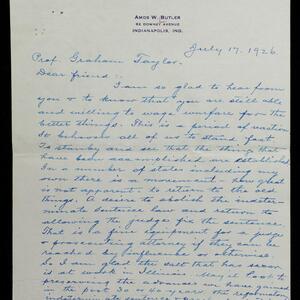 AMOS W. BUTLER
52 DOWNEY AVENUE
INDIANAPOLIS, IND.
July 17, 1926.
Prof. Graham Taylor.
Dear friend:
I am so glad to hear from
you & to know that you are still able
and willing to wage warfare for the
better things. This is a period of reaction
It behooves all of us to stand fast.
To stand by and see that the things that
have been accomplished are established
In a number of states including my
own there is a movement whose goal
is not apparent to return to the old
things. A desire to abolish the indeter-
minate sentence law and return to
allowing the judge fix the sentence.
That is a fine equipment for a judge
or prosecuting attorney if they can be
reached by influence or otherwise.
So I am glad the that has
is at work in Illinois. May it look to
preserving the advances we have gained
in the past